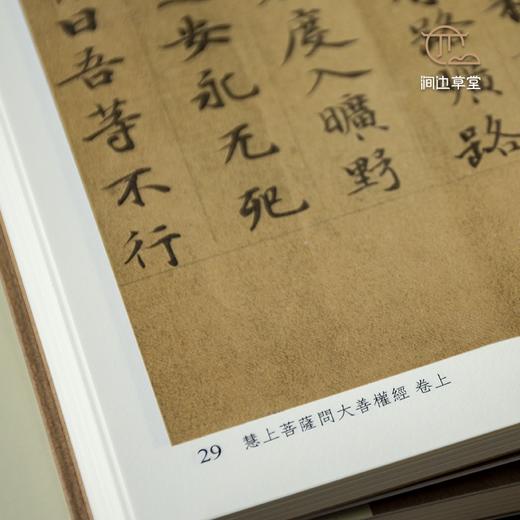 路順路
度入曠野
安永无死
日吾等不行
29 慧上菩薩問大善權經 卷上
涧边草堂